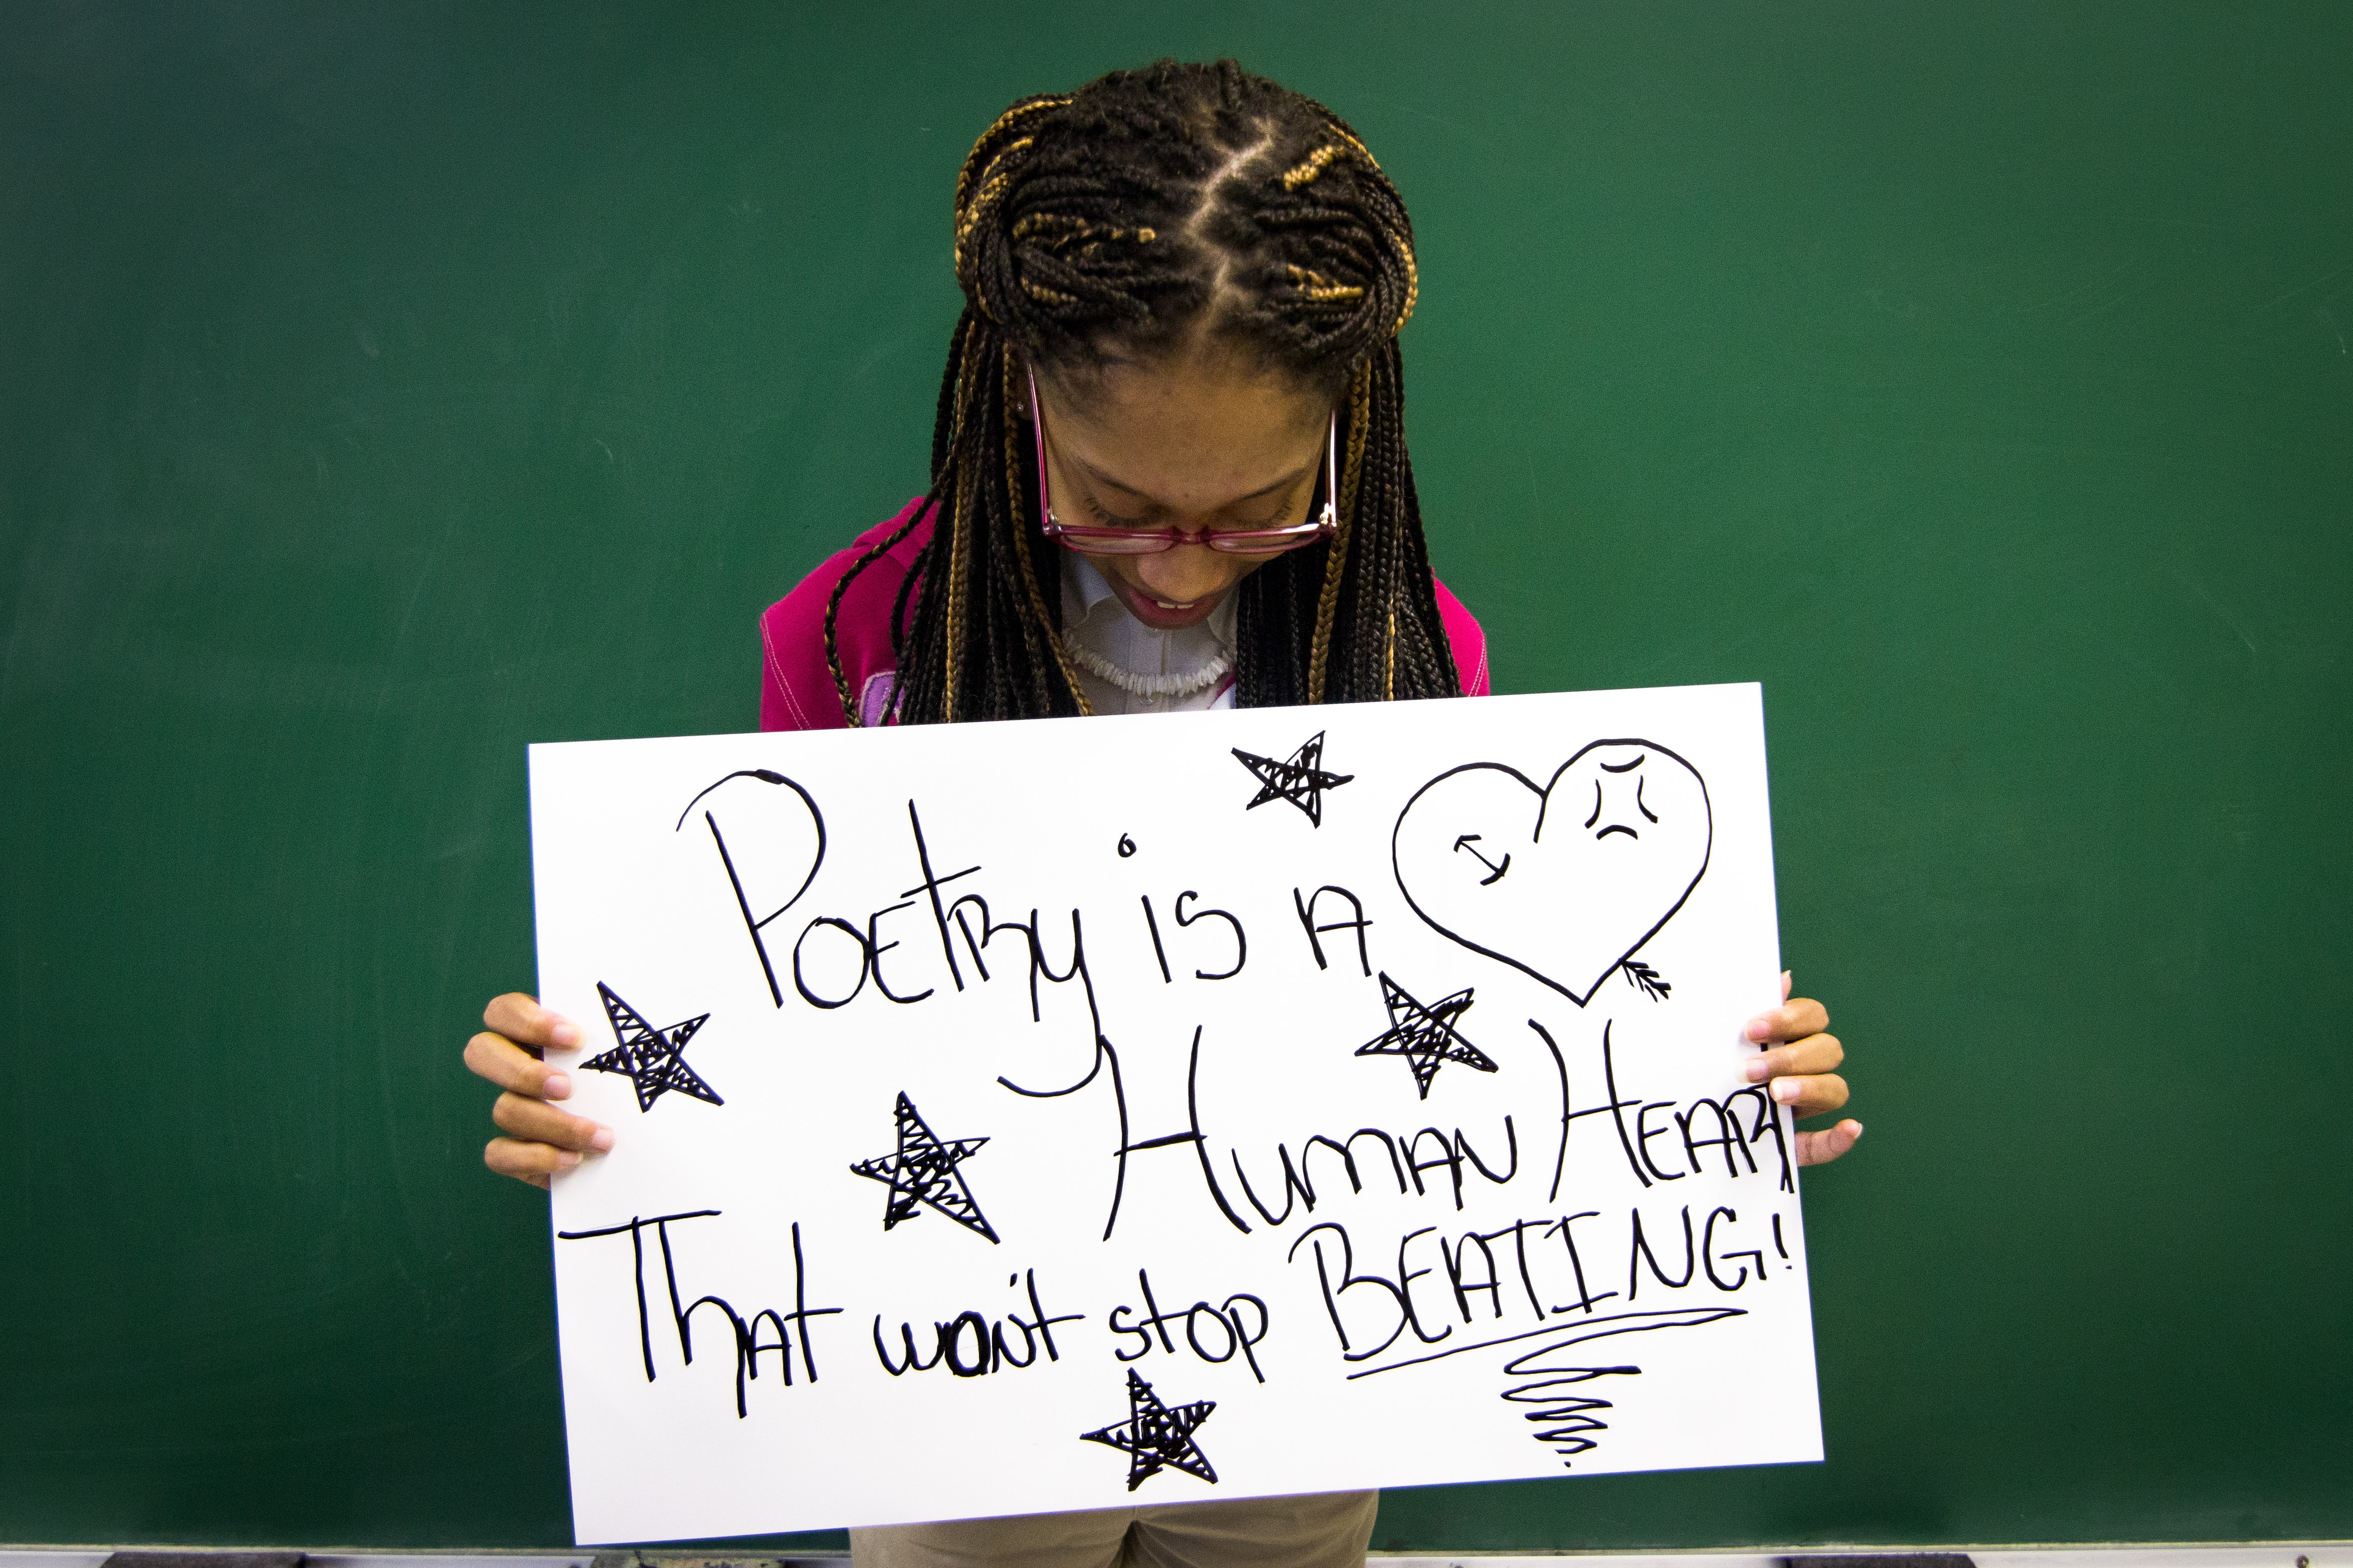 Poetry is A
Human Heart
That won't stop
BEATING!